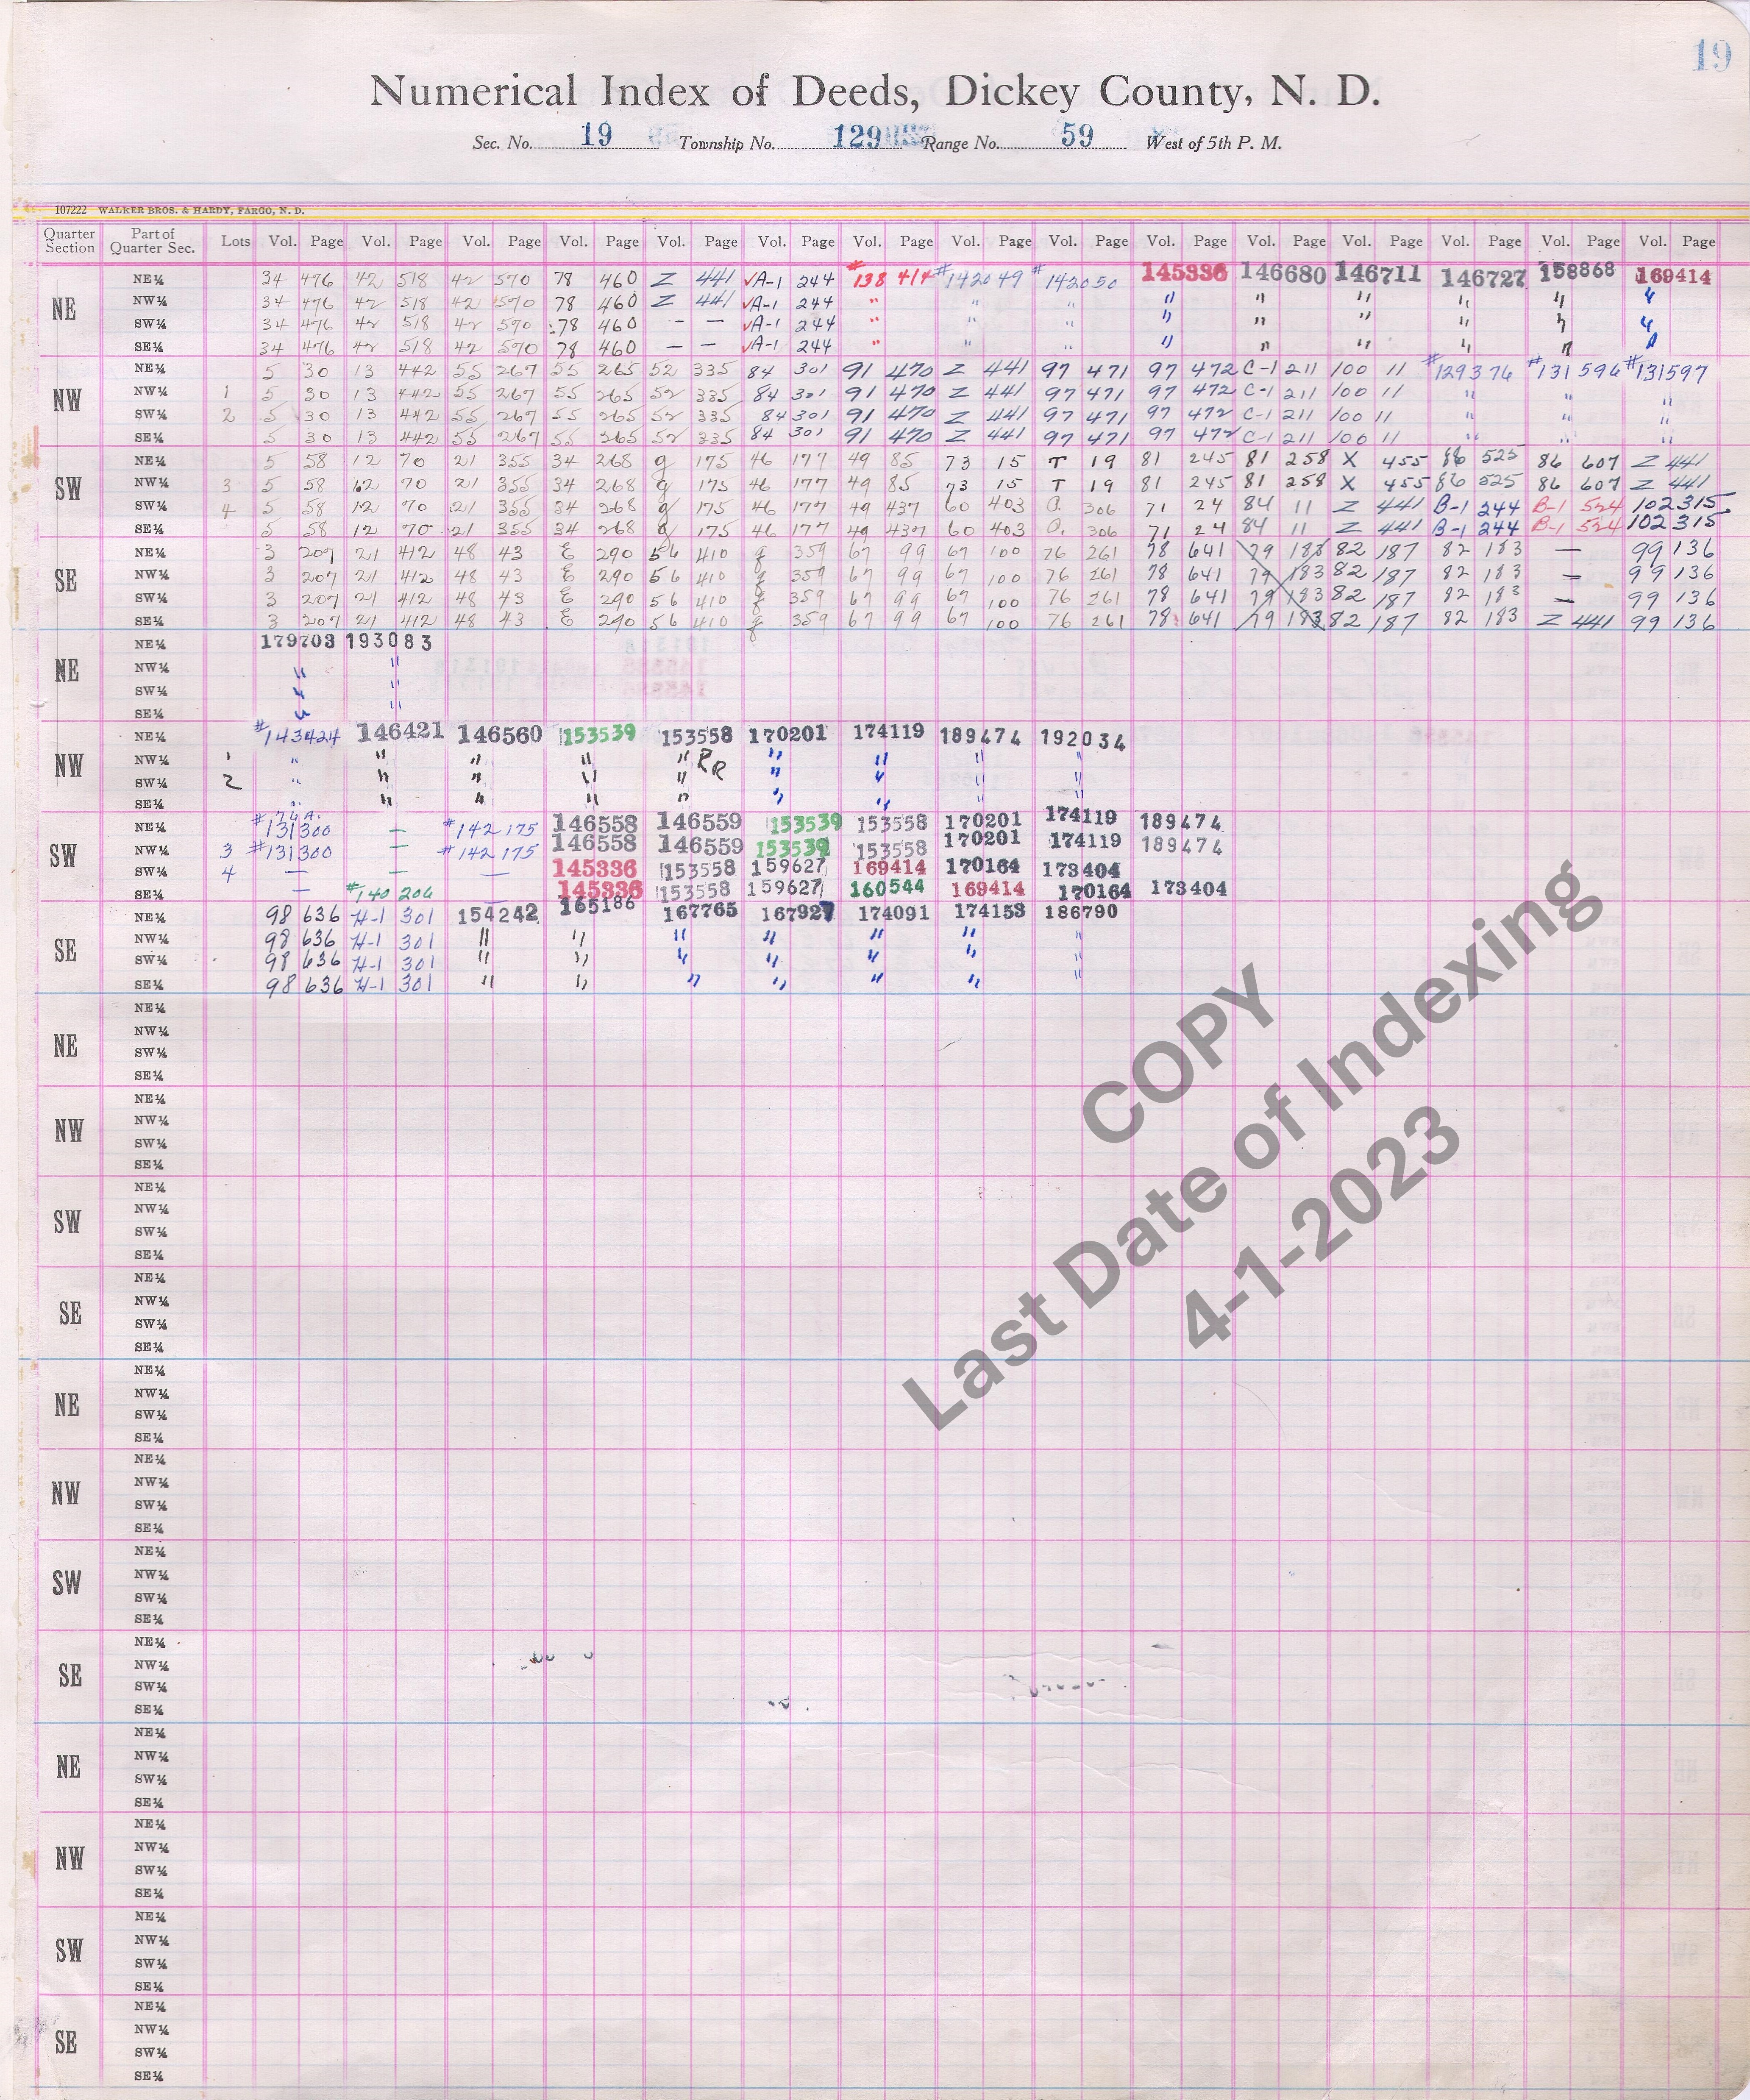 19
Numerical Index of Deeds, Dickey County, N. D.
Sec. No. 19 Township No. 129 Range No. 59 West of 5th P. M.
107222 WALKER BROS. & HARDY, FARGO, N. D.
Quarter Section Part of Quarter Sec. Lots Vol. Page Vol. Page Vol. Page Vol. Page Vol. Page Vol. Page Vol. Page Vol. Page Vol. Page Vol. Page Vol. Page Vol. Page Vol. Page Vol. Page Vol. Page
NE
NE¼ 34 476 42 518 42 570 78 460 Z 441 √A-1 244 #138 414 #142049 #142050 145336 146680 146711 146727 158868 169414
NW¼ 34 476 42 518 42 570 78 460 Z 441 √A-1 244 " " " " " " " " "
SW¼ 34 476 42 518 42 570 78 460 — — √A-1 244 " " " " " " " " "
SE¼ 34 476 42 518 42 570 78 460 — — √A-1 244 " " " " " " " " "
NW
NE¼ 5 30 13 442 55 267 55 265 52 335 84 301 91 470 Z 441 97 471 97 472 C-1 211 100 11 #129376 #131596 #131597
NW¼ 1 5 30 13 442 55 267 55 265 52 335 84 301 91 470 Z 441 97 471 97 472 C-1 211 100 11 " " "
SW¼ 2 5 30 13 442 55 267 55 265 52 335 84 301 91 470 Z 441 97 471 97 472 C-1 211 100 11 " " "
SE¼ 5 30 13 442 55 267 55 265 52 335 84 301 91 470 Z 441 97 471 97 472 C-1 211 100 11 " " "
SW
NE¼ 5 58 12 70 21 355 34 268 g 175 46 177 49 85 73 15 T 19 81 245 81 258 X 455 86 525 86 607 Z 441
NW¼ 3 5 58 12 70 21 355 34 268 g 175 46 177 49 85 73 15 T 19 81 245 81 258 X 455 86 525 86 607 Z 441
SW¼ 4 5 58 12 70 21 355 34 268 g 175 46 177 49 437 60 403 O. 306 71 24 84 11 Z 441 B-1 244 B-1 524 102 315
SE¼ 5 58 12 70 21 355 34 268 g 175 46 177 49 437 60 403 O. 306 71 24 84 11 Z 441 B-1 244 B-1 524 102 315
SE
NE¼ 3 207 21 412 48 43 E 290 56 410 g 359 67 99 67 100 76 261 78 641 79 183 82 187 82 183 — 99 136
NW¼ 3 207 21 412 48 43 E 290 56 410 g 359 67 99 67 100 76 261 78 641 79 183 82 187 82 183 — 99 136
SW¼ 3 207 21 412 48 43 E 290 56 410 g 359 67 99 67 100 76 261 78 641 79 183 82 187 82 183 — 99 136
SE¼ 3 207 21 412 48 43 E 290 56 410 g 359 67 99 67 100 76 261 78 641 79 183 82 187 82 183 Z 441 99 136
NE
NE¼ 179703 193083
NW¼ " "
SW¼ " "
SE¼ " "
NW
NE¼ #143424 146421 146560 153539 153558 170201 174119 189474 192034
NW¼ 1 " " " " " RR " " " "
SW¼ 2 " " " " " " " " "
SE¼ " " " " " " " " "
SW
NE¼ #131300 — #142175 146558 146559 153539 153558 170201 174119 189474
NW¼ 3 #131300 — #142175 146558 146559 153539 153558 170201 174119 189474
SW¼ 4 — — — 145336 153558 159627 169414 170164 173404
SE¼ — #140206 — 145336 153558 159627 160544 169414 170164 173404
SE
NE¼ 98 636 H-1 301 154242 165186 167765 167927 174091 174153 186790
NW¼ 98 636 H-1 301 " " " " " " "
SW¼ 98 636 H-1 301 " " " " " " "
SE¼ 98 636 H-1 301 " " " " " " "
NE
NE¼
NW¼
SW¼
SE¼
NW
NE¼
NW¼
SW¼
SE¼
SW
NE¼
NW¼
SW¼
SE¼
SE
NE¼
NW¼
SW¼
SE¼
NE
NE¼
NW¼
SW¼
SE¼
NW
NE¼
NW¼
SW¼
SE¼
SW
NE¼
NW¼
SW¼
SE¼
SE
NE¼
NW¼
SW¼
SE¼
NE
NE¼
NW¼
SW¼
SE¼
NW
NE¼
NW¼
SW¼
SE¼
SW
NE¼
NW¼
SW¼
SE¼
SE
NE¼
NW¼
SW¼
SE¼
COPY
Last Date of Indexing
4-1-2023